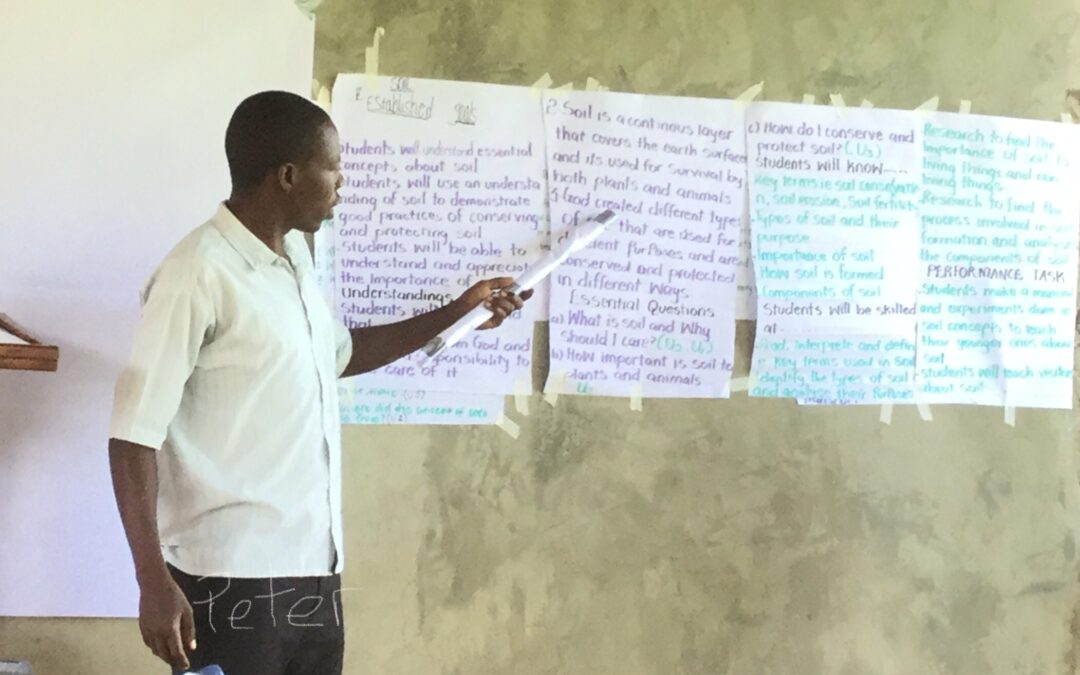 SOIL
Established goals
Students will understand essential
concepts about soil
Students will use an understa
nding of soil to demonstrate
good practices of conserving
and protecting soil
Students will be able to
understand and appreciat
the importance of
Understandings
Students will
that
in God and
responsibility to
care of it
2. Soil is a continous layer
that covers the earth surface
and its used for survival by
both plants and animals
3 God created different types
of that are used for
purposes and are
conserved and protected
in different ways
Essential Questions
a) What is soil and Why
Should I care? (U2, U1)
b) How important is soil to
plants and animals
c) How do I conserve and
protect soil? (U3)
Students will know----
Key terms ie soil conservatio
n, soil erosion, Soil fertility
Types of soil and their
purpose
Importance of soil
How soil is formed
Components of soil
Students will be skilled
at
Read, interpret and defin
e key terms used in soil
Identify the types of soil
and analyse their purposes
Research to find the
importance of soil to
living things and non
living things.
Research to find the
process involved in soil
formation and analyse
the components of soil
PERFORMANCE TASK
Students make a
and experiments done in
soil concepts to teach
their younger ones about
soil
students will teach
about soil
Peter